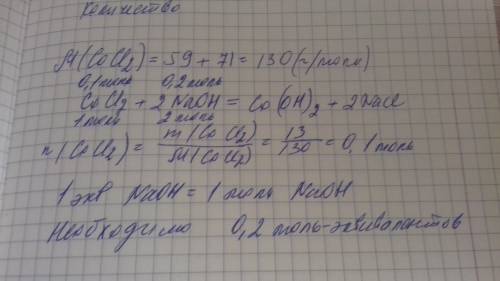 количество
M(CoCl2) = 59 + 71 = 130 (г/моль)
0,1 моль 0,2 моль
CoCl2 + 2 NaOH = Co(OH)2 + 2 NaCl
1 моль 2 моль
n(CoCl2) = m(CoCl2) / M(CoCl2) = 13 / 130 = 0,1 моль
1 экв NaOH = 1 моль NaOH
Необходимо 0,2 моль-эквивалентов